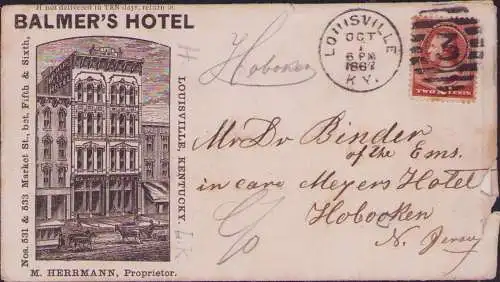 If not delivered in TEN days, return to
BALMER'S HOTEL
Nos. 531 & 533 Market St., bet. Fifth & Sixth,
LOUISVILLE, KENTUCKY.
M. HERRMANN, Proprietor.
Hoboken
LOUISVILLE
OCT
1
6 PM
1887
KY.
3
TWO CENTS
Mr Dr Binder
of the Ems.
in care Meyers Hotel
Hobocken
N. Jersey
c/o